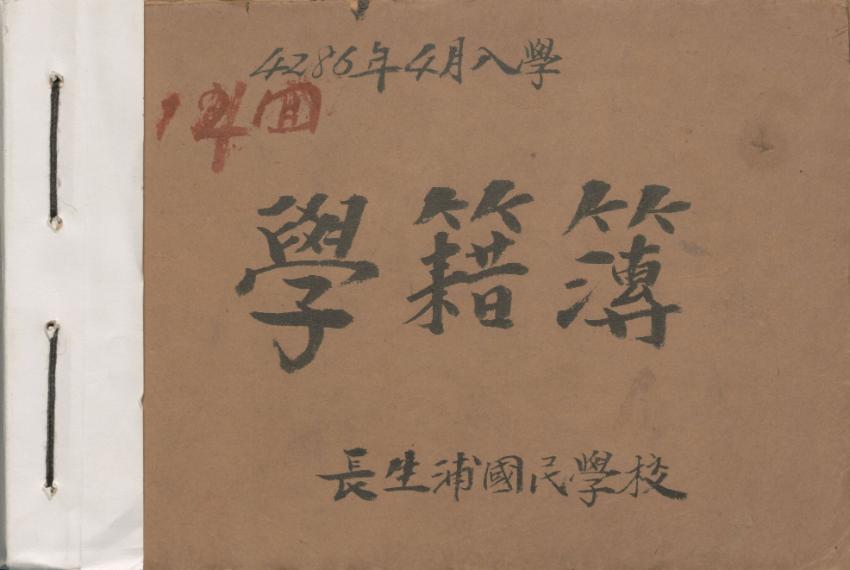 4286年4月入學
14回
學籍簿
長生浦國民學校